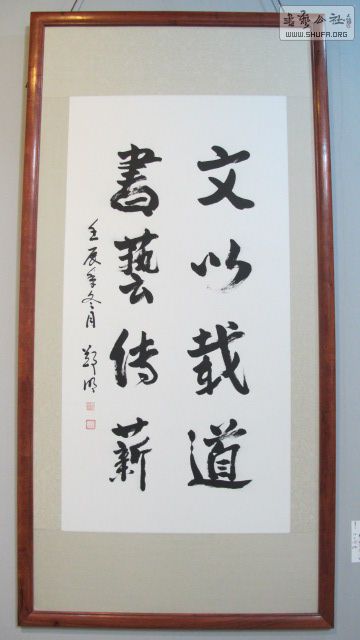 文以载道
書藝传薪
壬辰年冬月
鄭明
書藝公社
WWW.SHUFA.ORG